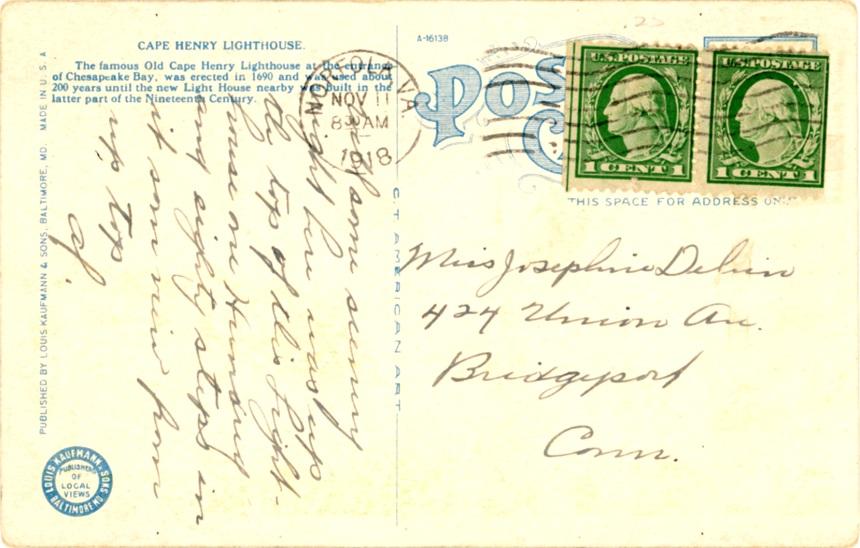 CAPE HENRY LIGHTHOUSE.
The famous Old Cape Henry Lighthouse at the entrance
of Chesapeake Bay, was erected in 1690 and was used about
200 years until the new Light House nearby was built in the
latter part of the Nineteenth Century.
A-16138
NOV 11
830 AM
1918
VA.
Pos
U.S. POSTAGE
1 CENT 1
U.S. POSTAGE
1 CENT 1
THIS SPACE FOR ADDRESS ONLY
some scenery
right here was up
the top of this Light-
house one Hundred
and eighty steps in
it some view from
up top
Miss Josephine
424 Union Av.
Bridgeport
Conn.
C.T. AMERICAN ART
PUBLISHED BY LOUIS KAUFMANN & SONS, BALTIMORE, MD. MADE IN U.S.A.
LOUIS KAUFMANN & SONS
BALTIMORE MD
PUBLISHERS
OF
LOCAL
VIEWS